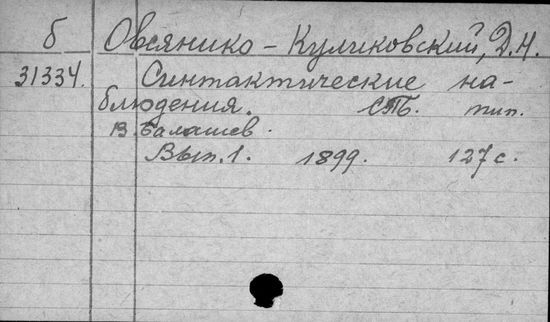 б Овсянико-Куликовский, Д.Н.
31334. Синтактические на-
блюдения. СПб. тип.
В. Балашев.
Вып. 1. 1899. 127 с.